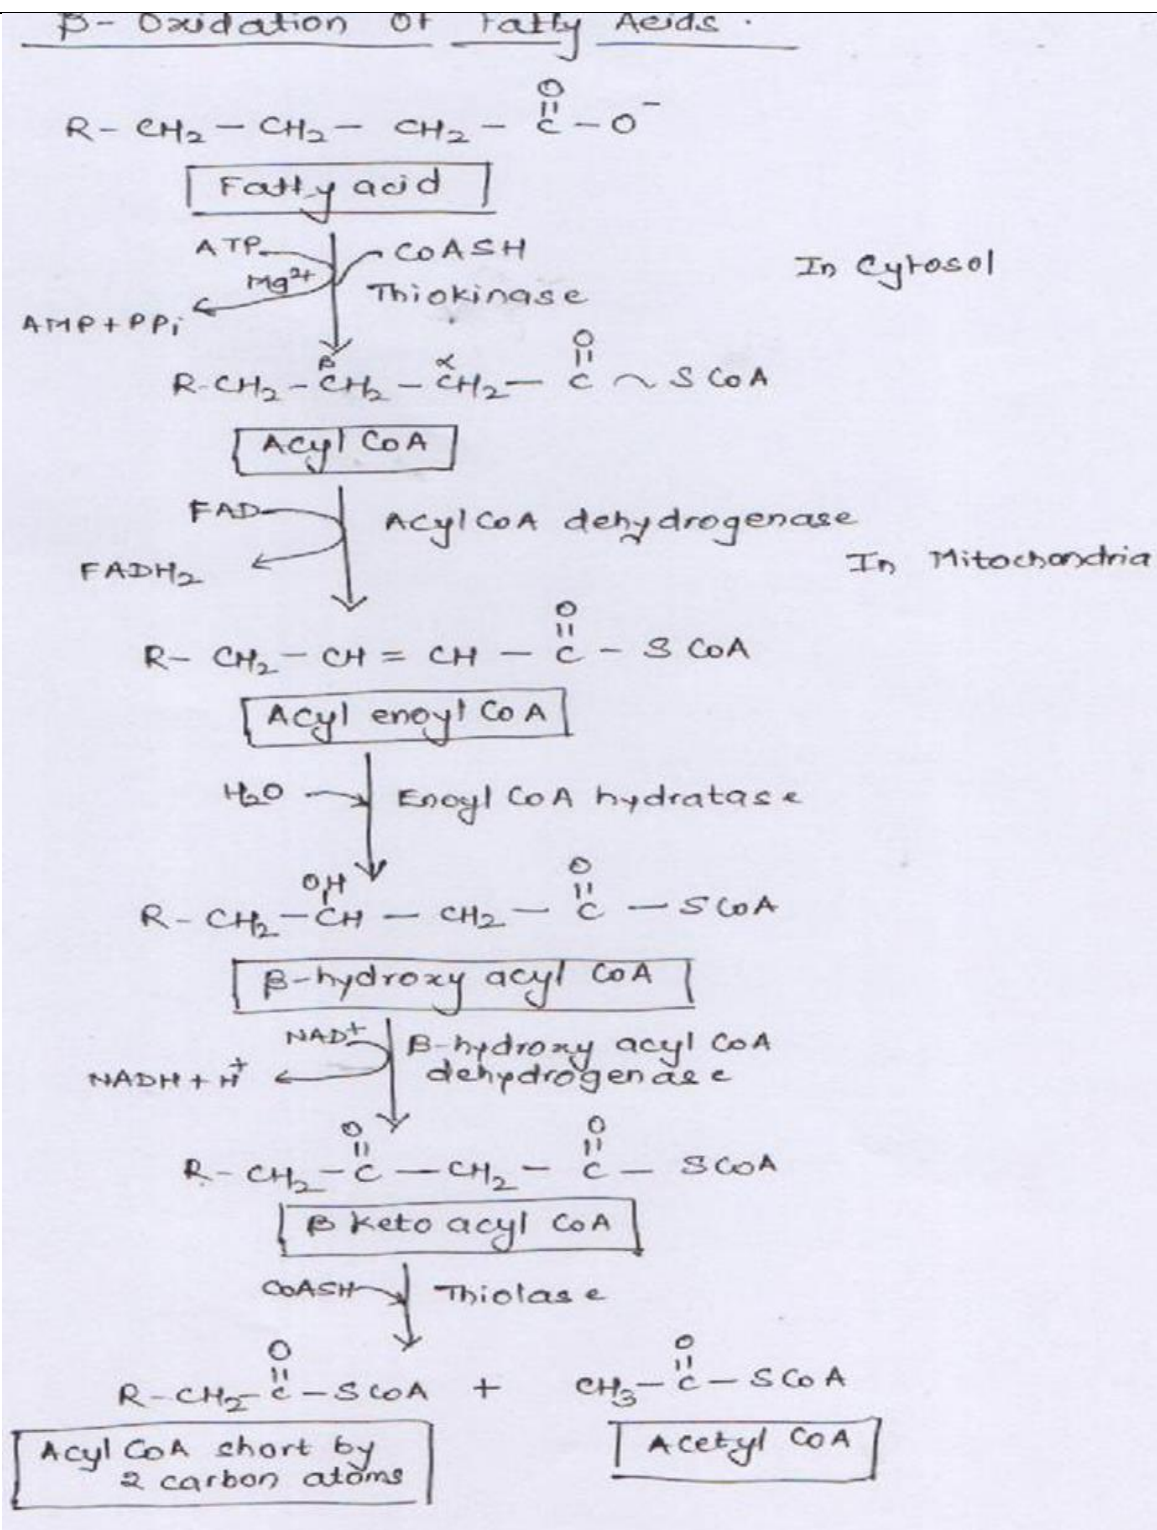 β- Oxidation Of Fatty Acids.
O
R- CH₂ - CH₂ - CH₂ - C - O⁻
Fatty acid
ATP CoASH
In Cytosol
Mg²⁺ Thiokinase
AMP+PPi
O
β α
R-CH₂ - CH₂ - CH₂ - C ~ S CoA
Acyl CoA
FAD Acyl CoA dehydrogenase
FADH₂ In Mitochondria
O
R- CH₂ - CH = CH - C - S CoA
Acyl enoyl CoA
H₂O Enoyl CoA hydratase
OH O
R - CH₂ - CH - CH₂ - C - SCoA
β-hydroxy acyl CoA
NAD⁺ β-hydroxy acyl CoA
NADH + H⁺ dehydrogenase
O O
R - CH₂ - C - CH₂ - C - SCoA
β keto acyl CoA
CoASH Thiolase
O O
R-CH₂- C - SCoA + CH₃- C - SCoA
Acyl CoA short by
2 carbon atoms
Acetyl CoA